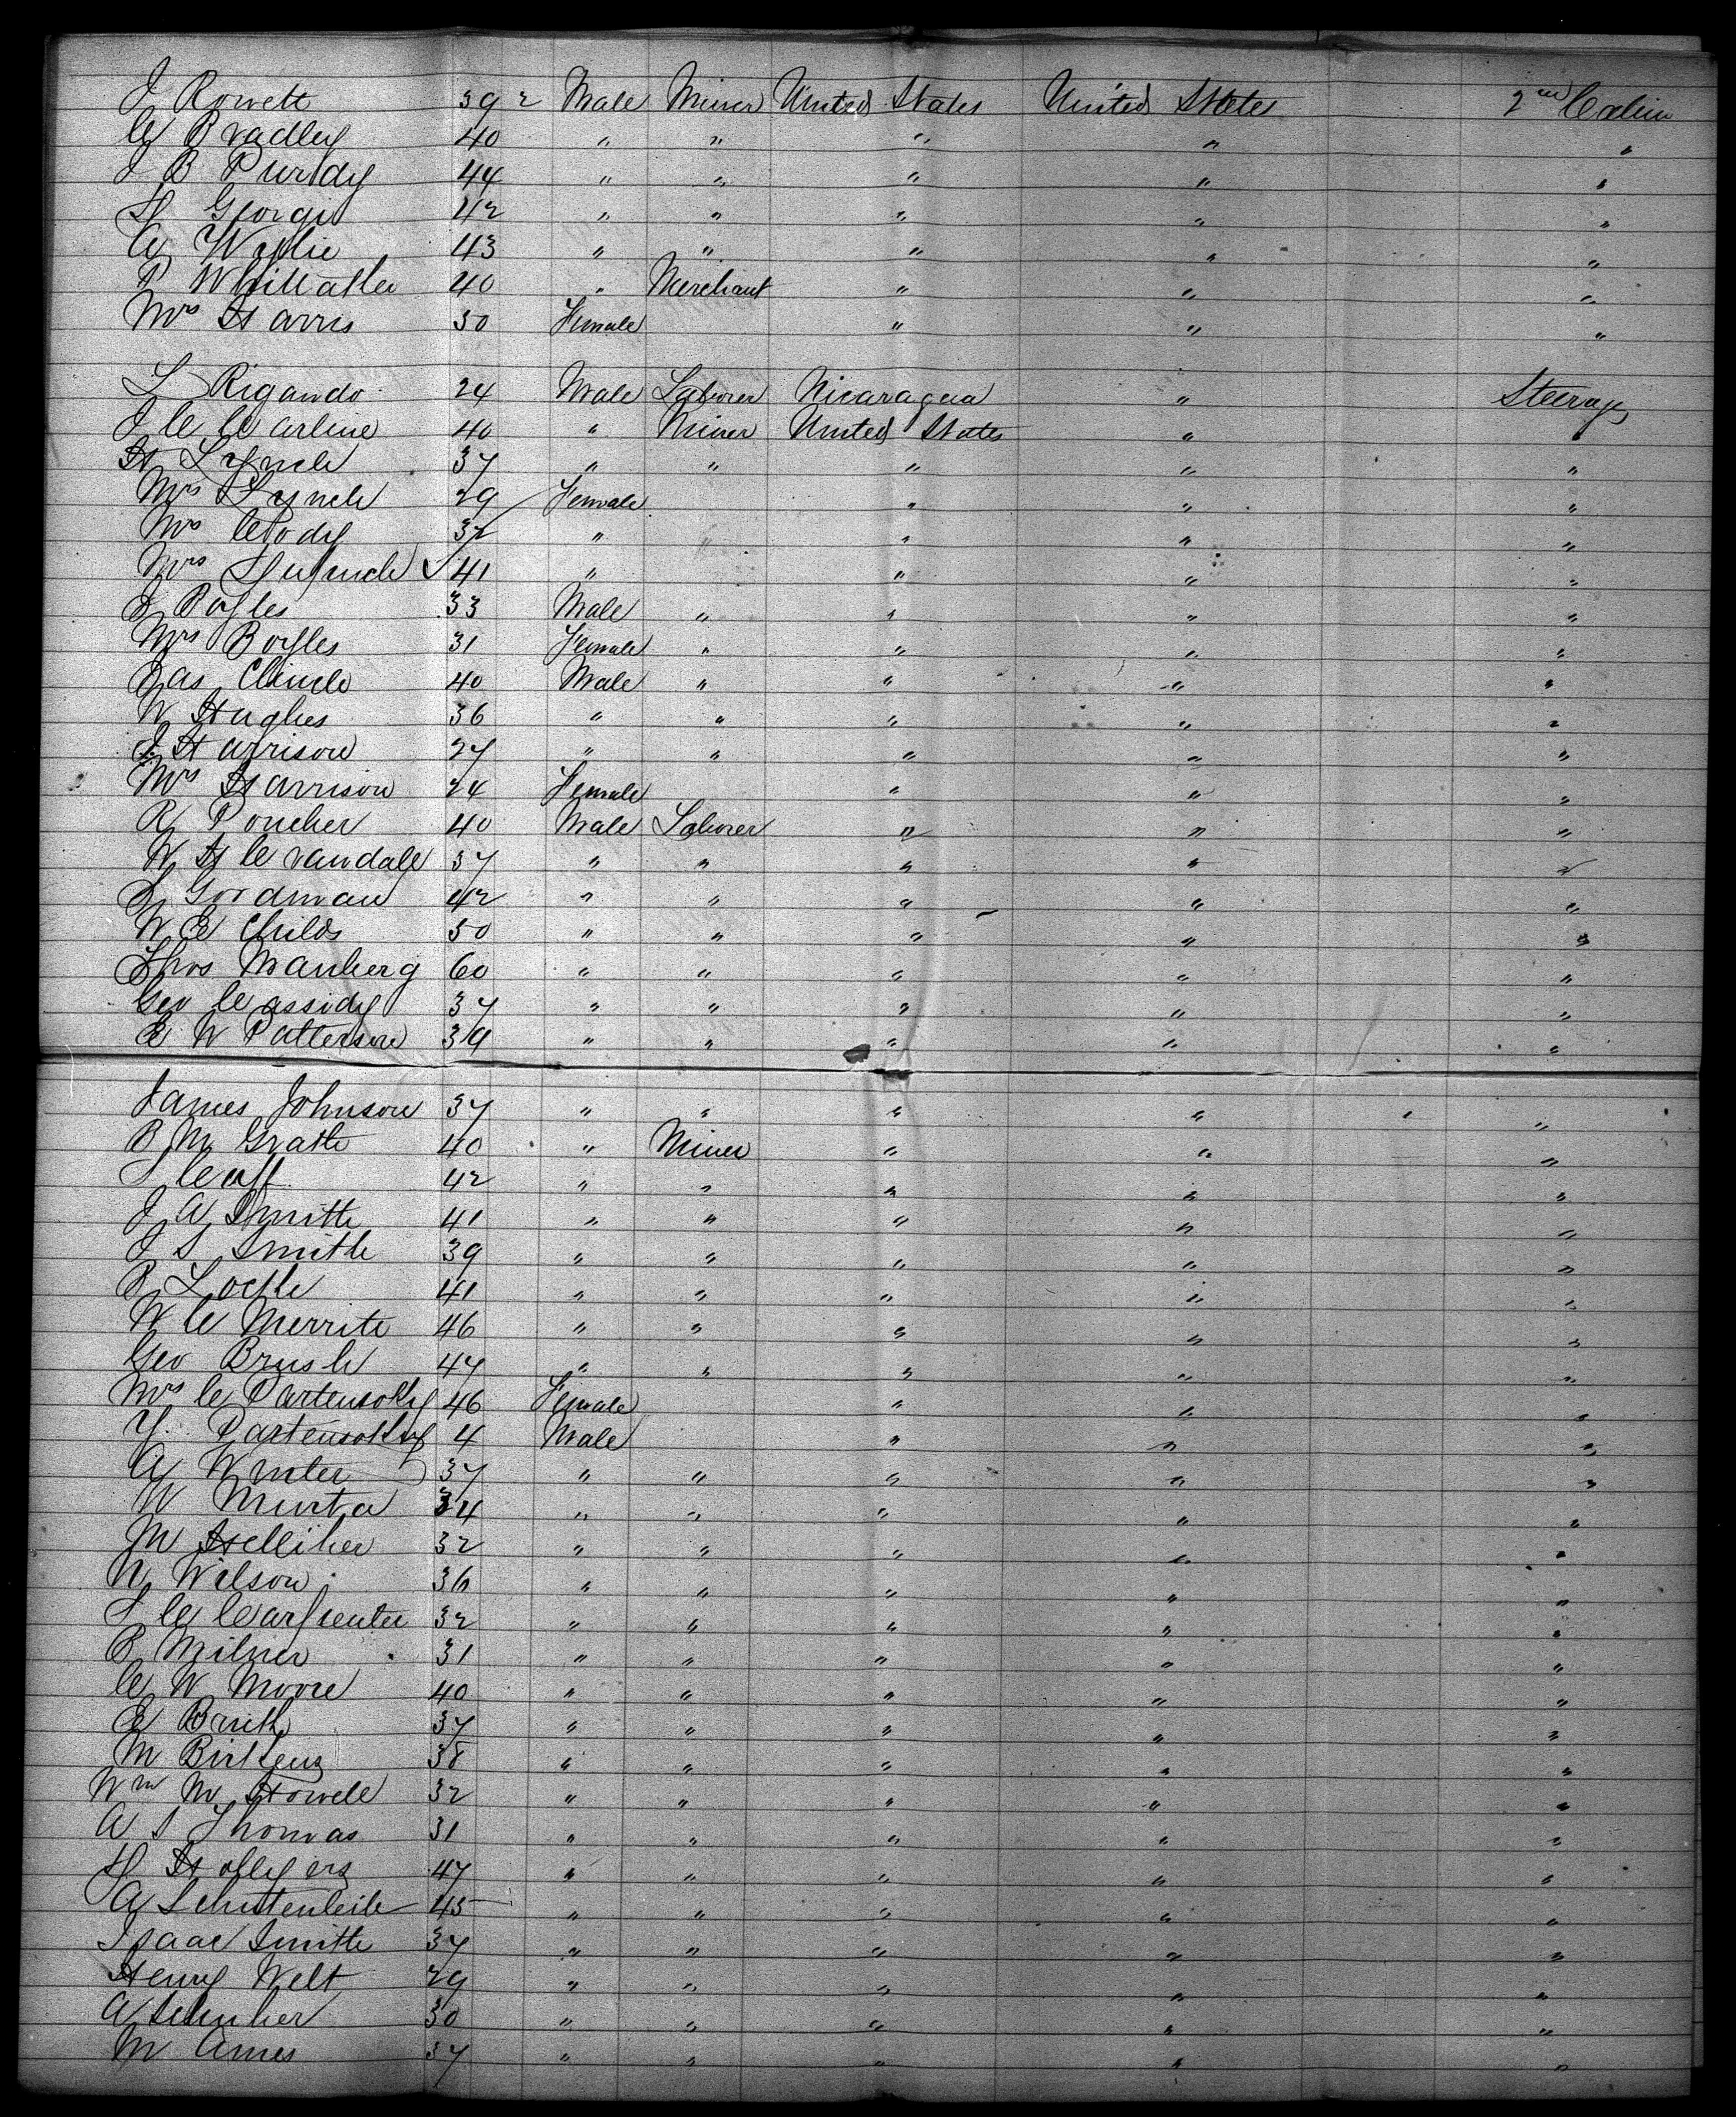 J Rowett 39 2 Male Miner United States United States 2nd Cabin
C Bradley 40 " " " " "
J B Purdy 44 " " " " "
H George 42 " " " " "
A Wylie 43 " " " " "
P Whittaker 40 " Merchant " " "
Mrs Harris 30 Female " " "
L Rigando 24 Male Laborer Nicaragua " Steerage
J C Carline 40 " Miner United States " "
H Lynch 37 " " " " "
Mrs Lynch 29 Female " " "
Mrs Cody 32 " " " "
Mrs 41 " " " "
J Boyles 33 Male " " " "
Mrs Boyles 31 Female " " " "
Jas Clinch 40 Male " " " "
W Hughes 36 " " " " "
J Harrison 27 " " " " "
Mrs Harrison 24 Female " " "
R Poucher 40 Male Laborer " " "
W H Crandale 37 " " " " "
S Goodman 42 " " " " "
W E Childs 50 " " " " "
Thos Manberg 60 " " " " "
Geo Cassidy 37 " " " " "
E W Patterson 39 " " " " "
James Johnson 37 " " " " "
P McGrath 40 " Miner " " "
42 " " " " "
J A Smith 41 " " " " "
J S Smith 39 " " " " "
P Locke 41 " " " " "
W C Merritt 46 " " " " "
Geo Brush 47 " " " " "
Mrs C Partensky 46 Female " " "
Y. Partensky 4 Male " " "
A Winter 37 " " " " "
W Murta 34 " " " " "
M Helliher 32 " " " " "
N Wilson 36 " " " " "
S C Carpenter 32 " " " " "
P Milner 31 " " " " "
C W Moore 40 " " " " "
E 37 " " " " "
M Birkens 38 " " " " "
Wm M Howell 32 " " " " "
A S Thomas 31 " " " " "
H 47 " " " " "
A 45 " " " " "
Isaac Smith 37 " " " " "
Henry Welt 29 " " " " "
A 30 " " " " "
M Ames 37 " " " " "